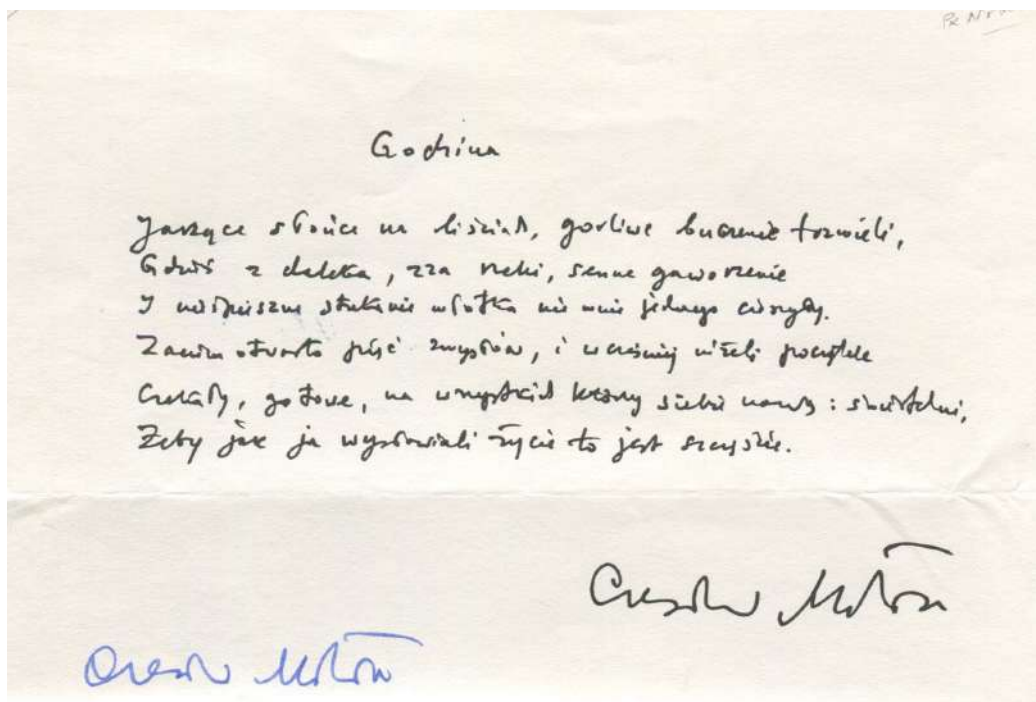 Godzina
Jarzące słońce na liściach, gorliwe buczenie trzmieli,
Gdzieś z daleka, zza rzeki, senne gaworzenie
I nieśpieszne stukanie młotka nie mnie jednego cieszyły.
Zanim otwarto pięć zmysłów, i wcześniej niżeli początek
Czekały, gotowe, na wszystkich którzy siebie nazwą: śmiertelni,
Żeby jak ja wysławiali życie to jest szczęście.
Czesław Miłosz
Czesław Miłosz